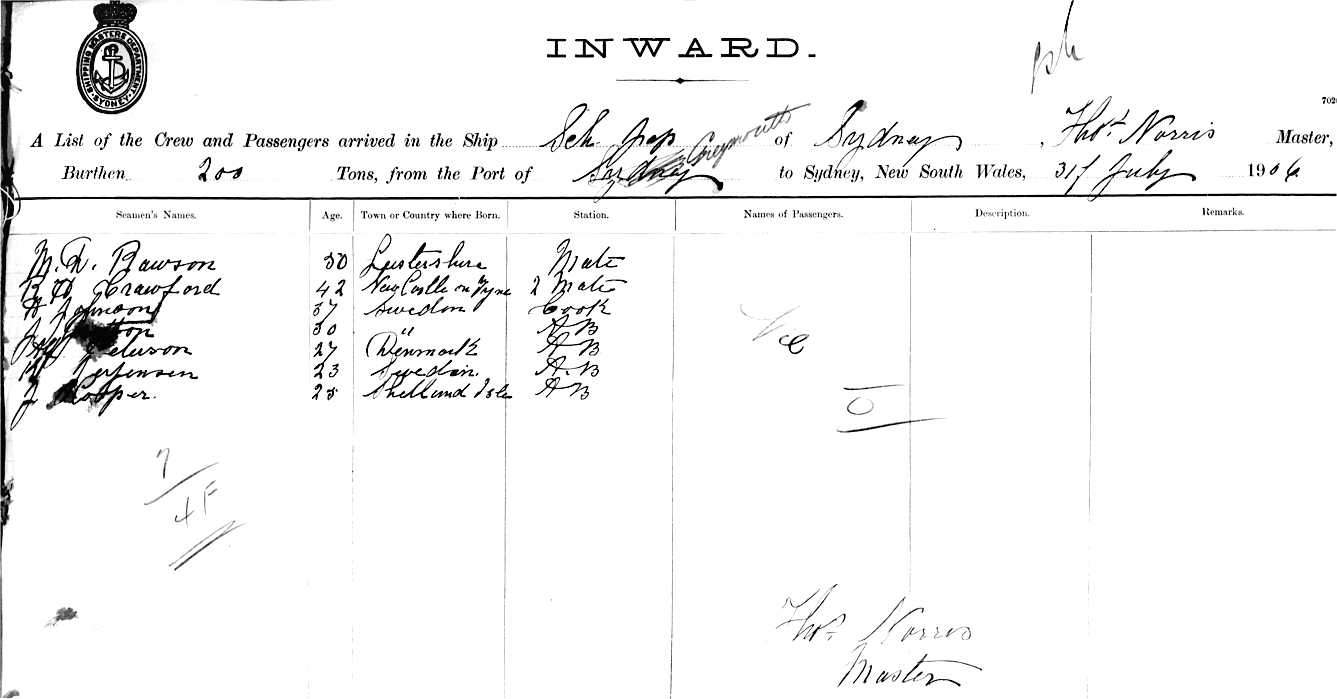 SHIPPING MASTERS DEPARTMENT
SYDNEY
INWARD.
A List of the Crew and Passengers arrived in the Ship Sch. of Sydney, Thos. Norris Master,
Greymouth
Burthen 200 Tons, from the Port of Sydney to Sydney, New South Wales, 31st July 1906
Seamen's Names. Age. Town or Country where Born. Station. Names of Passengers. Description. Remarks.
Rawson 30 Mate
Crawford 42 New Castle on Tyne 2 Mate
Johnson 37 Sweden Cook
30 " AB
Peterson 27 Denmark AB
23 Sweden. A.B
J Cooper. 25 Shetland Isle AB
7
4 F
0
Thos. Norris
Master